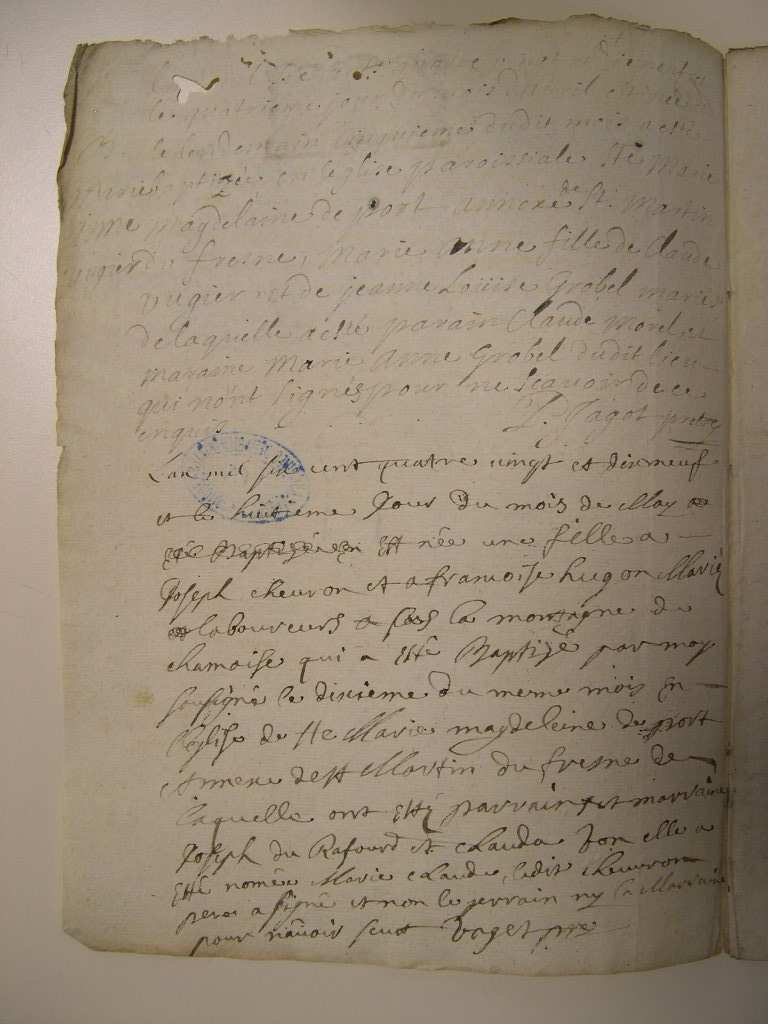 le quatrieme jour du mois d'avril et
le lendemain cinquieme dudit mois a esté
baptizée en leglise paroissiale Ste Marie
magdelaine de port annexe de St. Martin
du fresne, Marie Anne fille de Claude
vugier et de jeanne Loüise Grobel maries
de laquelle a esté parain Claude Morel et
maraine Marie Anne Grobel dudit lieu
qui n'ont signés pour ne scauoir de ce
enquis L. Jagot pretre
Lan mil six cent quatre vingt et dixneuf
et le huitieme Jour du mois de May
est née une fille a
Joseph cheuron et a francoise hugon Mariés
laboureurs a la montagne de
chamoise qui a esté Baptizé par moy
sousigné le dixieme du meme mois En
l'église de Ste Marie magdeleine de port
Annexe de St Martin du fresne de
laquelle ont esté parrain et marraine
Joseph du Rafourd et Clauda elle a
esté nomée Marie Claude, ledit cheuron
pere a signé et non le perrain ny la Marraine
pour n'auoir sceut Voget pre